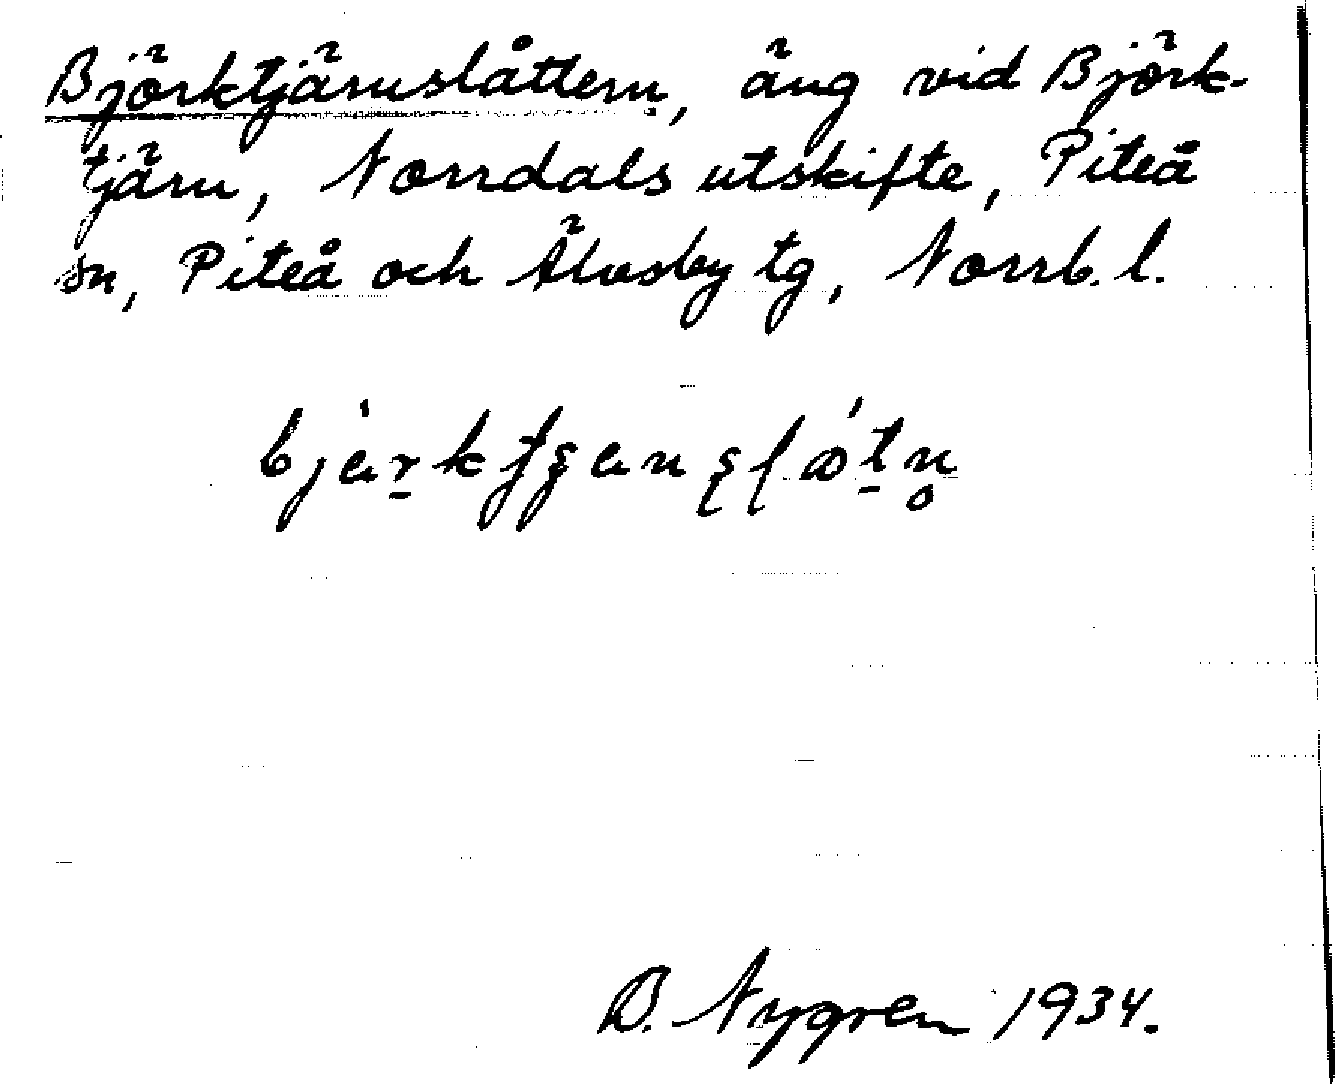 Björktjärnslåttern, äng vid Björk-
tjärn, Norrdals utskifte, Piteå
sn, Piteå och Älvsby tg, Norrb. l.
B. Nygren 1934.